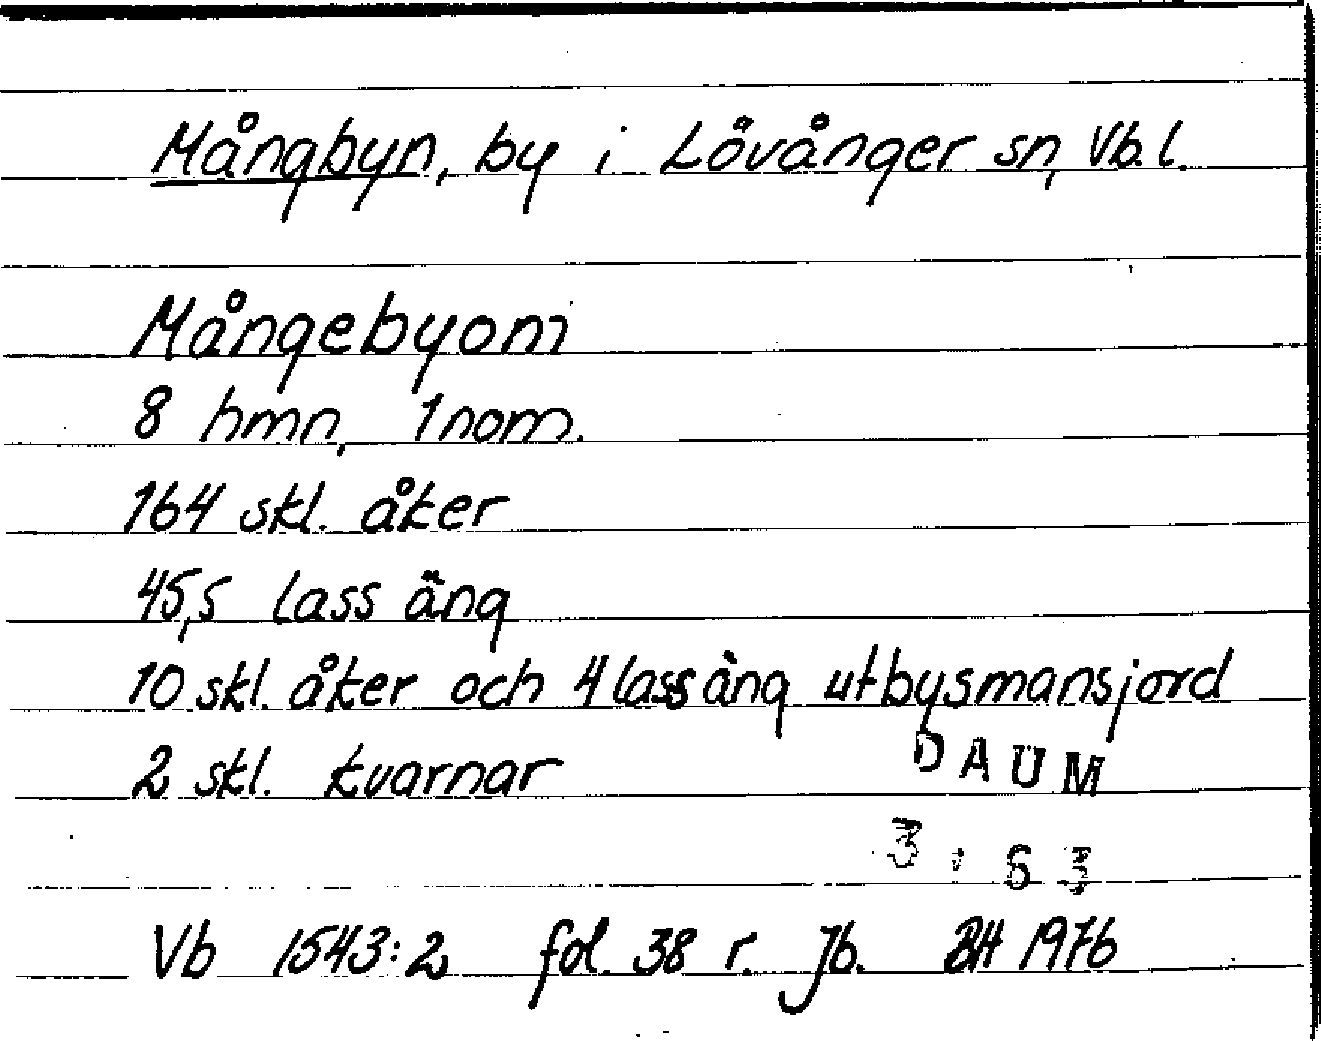 Mångbyn, by i Lövånger sn, Vb. l.
Mångebyom
8 hmn, 1 nom.
164 skl. åker
45,5 lass äng
10 skl. åker och 4 lass äng utbysmansjord
2 skl. kvarnar
DAUM
3:63
Vb 1543:2 fol. 38 r. Jb. BH 1976